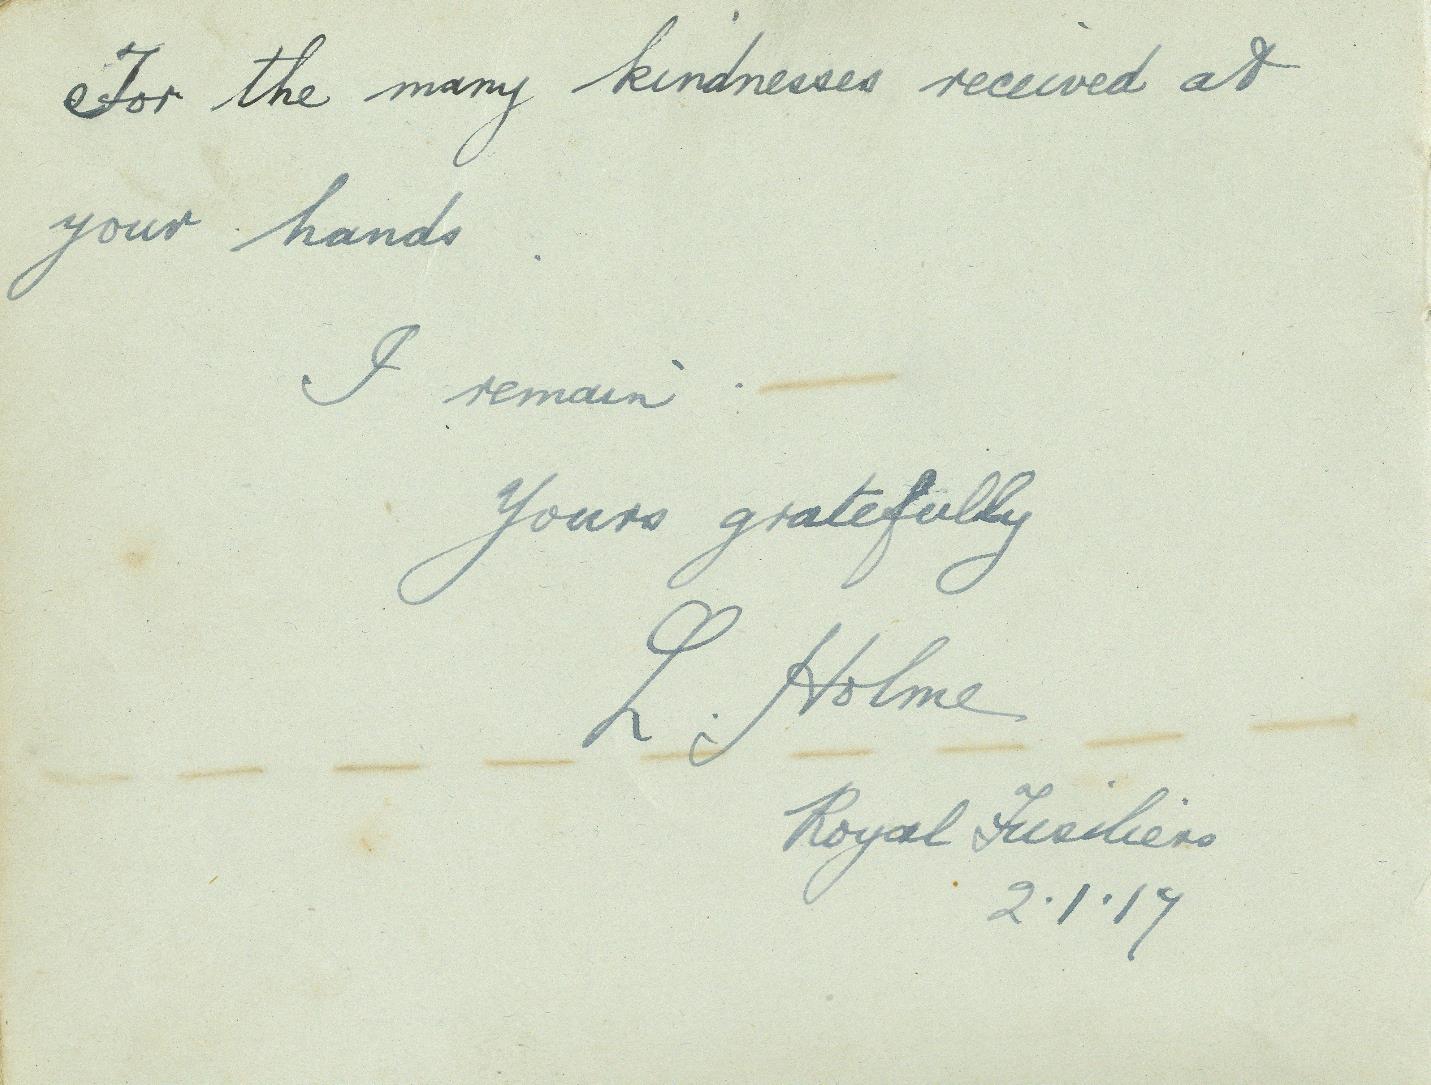 For the many kindnesses received at
your hands.
I remain
Yours gratefully
L. Holme
Royal Fusiliers
2.1.17